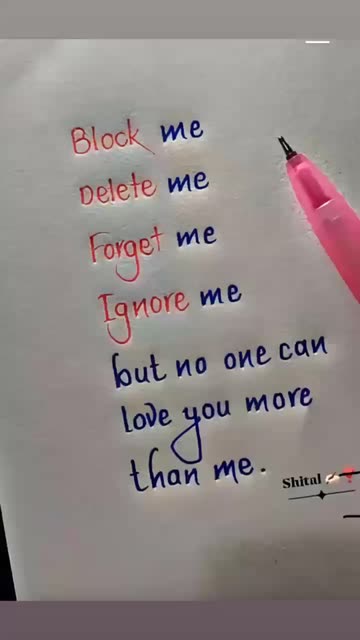 Block me
Delete me
Forget me
Ignore me
but no one can
love you more
than me.
Shital